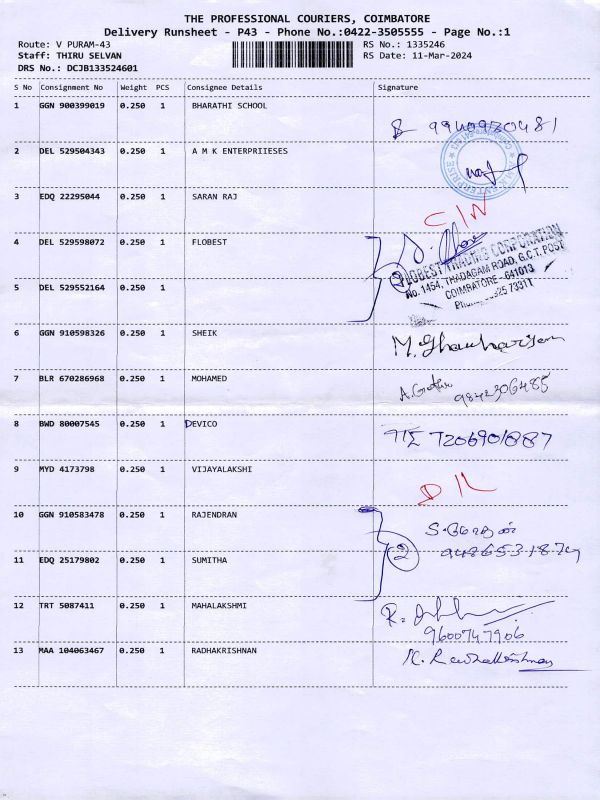 THE PROFESSIONAL COURIERS, COIMBATORE
Delivery Runsheet - P43 - Phone No.:0422-3505555 - Page No.:1
Route: V PURAM-43 RS No.: 1335246
Staff: THIRU SELVAN RS Date: 11-Mar-2024
DRS No.: DCJB133524601
S No Consignment No Weight PCS Consignee Details Signature
1 GGN 900399019 0.250 1 BHARATHI SCHOOL
9940930481
2 DEL 529504343 0.250 1 A M K ENTERPRIIESES
3 EDQ 22295044 0.250 1 SARAN RAJ
C/N
4 DEL 529598072 0.250 1 FLOBEST
FLOBEST TRADING CORPORATION
No. 1454, THADAGAM ROAD, G.C.T. POST
COIMBATORE - 641013
5 DEL 529552164 0.250 1
2
6 GGN 910598326 0.250 1 SHEIK
7 BLR 670286968 0.250 1 MOHAMED
9842306485
8 BWD 80007545 0.250 1 DEVICO
7206901887
9 MYD 4173798 0.250 1 VIJAYALAKSHI
D/L
10 GGN 910583478 0.250 1 RAJENDRAN
2
11 EDQ 25179802 0.250 1 SUMITHA
12 TRT 5087411 0.250 1 MAHALAKSHMI
9600747906
13 MAA 104063467 0.250 1 RADHAKRISHNAN
K. Radhakrishnan